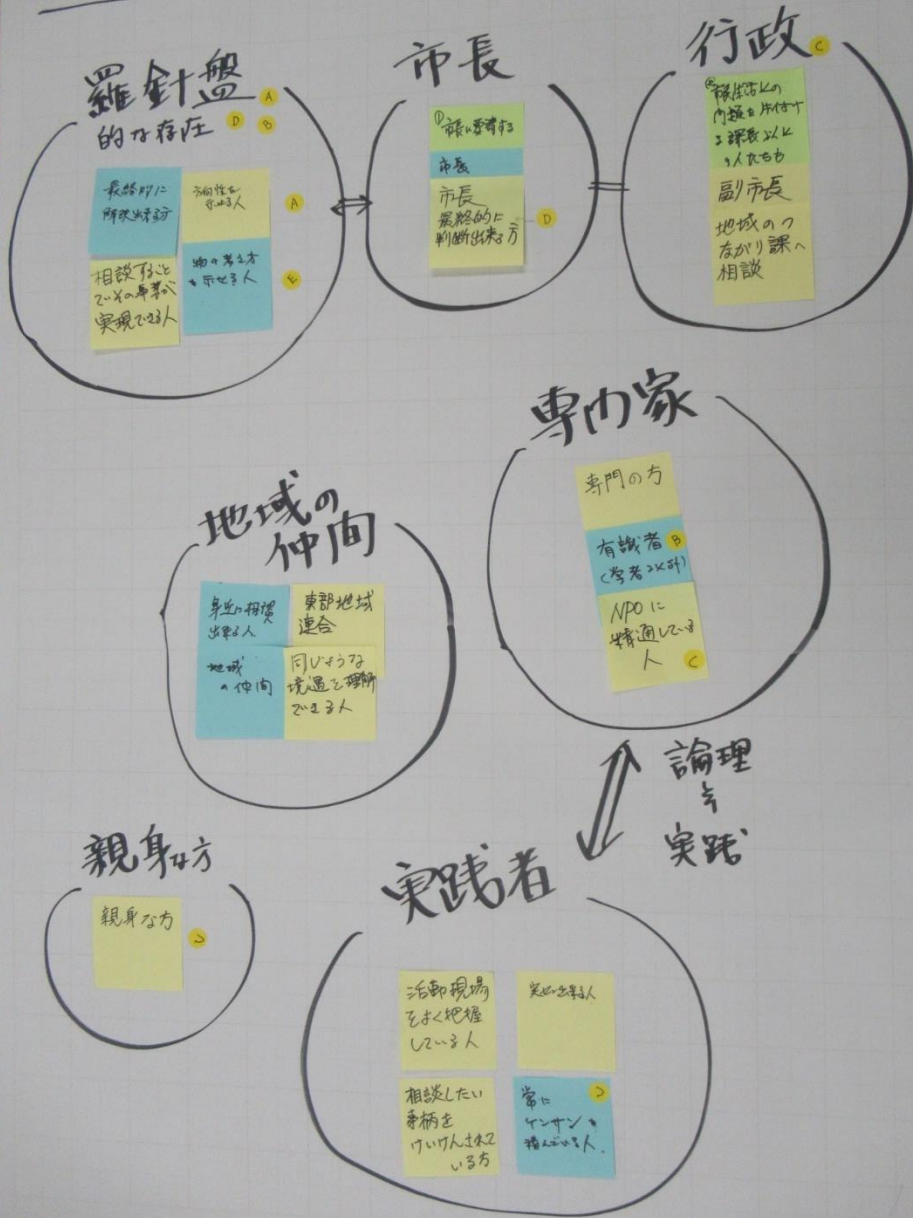 羅針盤
的な存在
A
D
B
最終的に
解決出来る方
方向性を
示せる人
A
相談すること
でその事業が
実現できる人
物の考え方
を示せる人
E
市長
①市長に要望する
市長
市長
最終的に
判断出来る方
D
行政
C
問題を片付け
る課長以上
の人たちも
副市長
地域のつ
ながり課へ
相談
専門家
専門の方
有識者
B
(学者以外)
NPOに
精通している
人
C
地域の
仲間
身近に相談
出来る人
東部地域
連合
地域
の仲間
同じような
境遇を理解
できる人
論理
と
実践
親身な方
親身な方
実践者
活動現場
をよく把握
している人
出来る人
相談したい
事柄を
けいけんされて
いる方
常に
ケンサンを
積んでいる人.